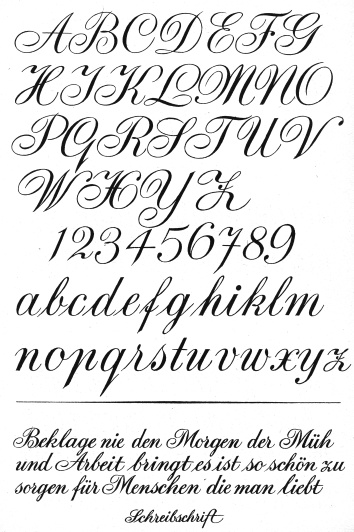 ABCDEFG
HIKLMNO
PQRSTUV
WXYZ
123456789
abcdefghiklm
nopqrstuvwxyz
Beklage nie den Morgen der Müh
und Arbeit bringt es ist so schön zu
sorgen für Menschen die man liebt
Schreibschrift